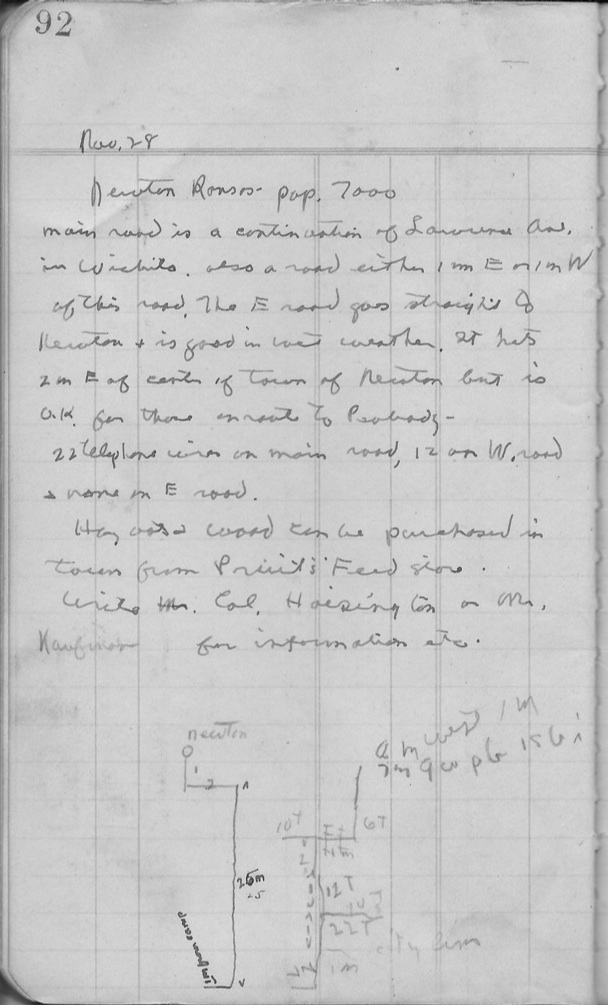 92
Nov. 28
Newton Kansas - pop. 7000
main road is a continuation of Lawrence Ave.
in Wichita. also a road either 1 m E or 1 m W
of this road. The E road goes straight to
Newton + is good in wet weather. It hits
2 m E of center of town of Newton but is
O.K. for those enroute to Peabody -
22 telephone wires on main road, 12 on W. road
& none on E road.
Hay oats & wood can be purchased in
town from Feed store.
Write Mr. Col. Hoisington or Mr.
Kaufman for information etc.
newton
1
2
26 E
1 m from camp
west 1 M
10 T
6 T
12 T
22 T
city limits
1 m